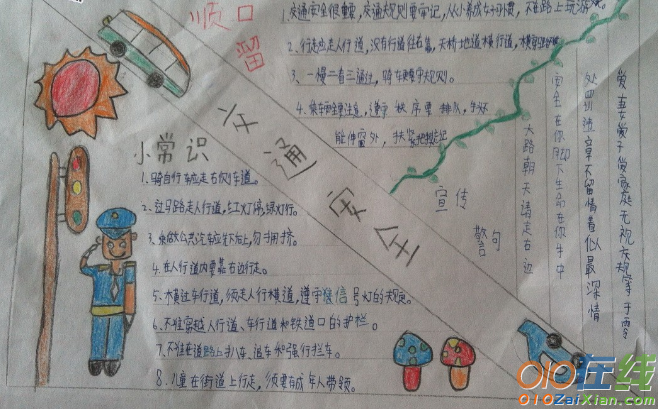 顺口
留
1、交通安全很重要，交通规则要牢记，从小养成好习惯，不在路上玩游戏。
2、行走应走人行道，没有行道往右靠，天桥地道横行道，横穿
3、一慢二看三通过，骑车要守规则。
4、乘车安全要注意，遵守秩序要排队，手
能伸窗外，扶紧把握
交通安全
小常识
1、骑自行车应走右侧车道。
2、过马路走人行道，红灯停，绿灯行。
3、乘做公共汽车应先下后上，勿拥挤。
4、在人行道内要靠右边行走。
5、横过车行道，须走人行横道，遵守信号灯的规定。
6、不准穿越人行道、车行道和铁道口的护栏。
7、不准在道路上扒车、追车和强行拦车。
8、儿童在街道上行走，须要有成年人带领。
宣传
警句
大路朝天请走右边
安全在你脚下生命在你手中
处罚违章不留情看似最深情
爱妻爱子爱家庭无视规等于零
010在线
010ZaiXian.com